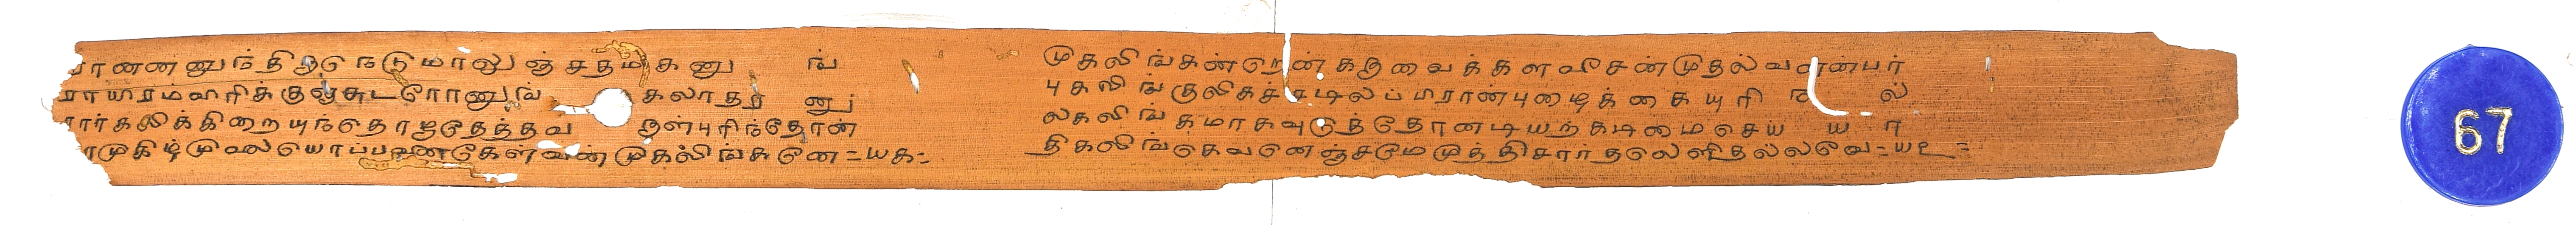 ானனனுந்திருநெடுமாலுஞ்சதமகனு ங்
ராயிரம்விரிக்குஞ்சுடரோனுங் கலாதர னும்
ரார்கலிக்கிறையுந்தொழுதேத்தவ ருள்புரிந்தோன்
ாமுகிழ்முலையொப்பவண்கேள்வன்முகலிங்கனே=௰௧=
முகலிங்கன்றென்கருவைக்களவீசன்முதல்வனென்பர்
புகலிங்குலிகச்சடிலப்பிரான்புழைக்கையுரி ல்
லகலிங்கமாகவுடுத்தோனடியற்கடிமைசெய ய ா
திகலிங்கெவனெஞ்சமேமுத்திசார்தலெளிதல்லவே=௰௨=
67